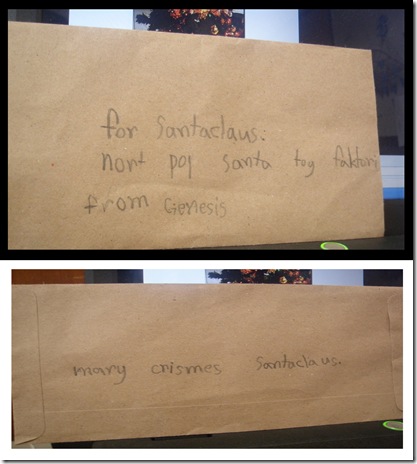 for Santaclaus:
nort pol santa toy faktori
from Genesis
mary crismes Santaclaus.